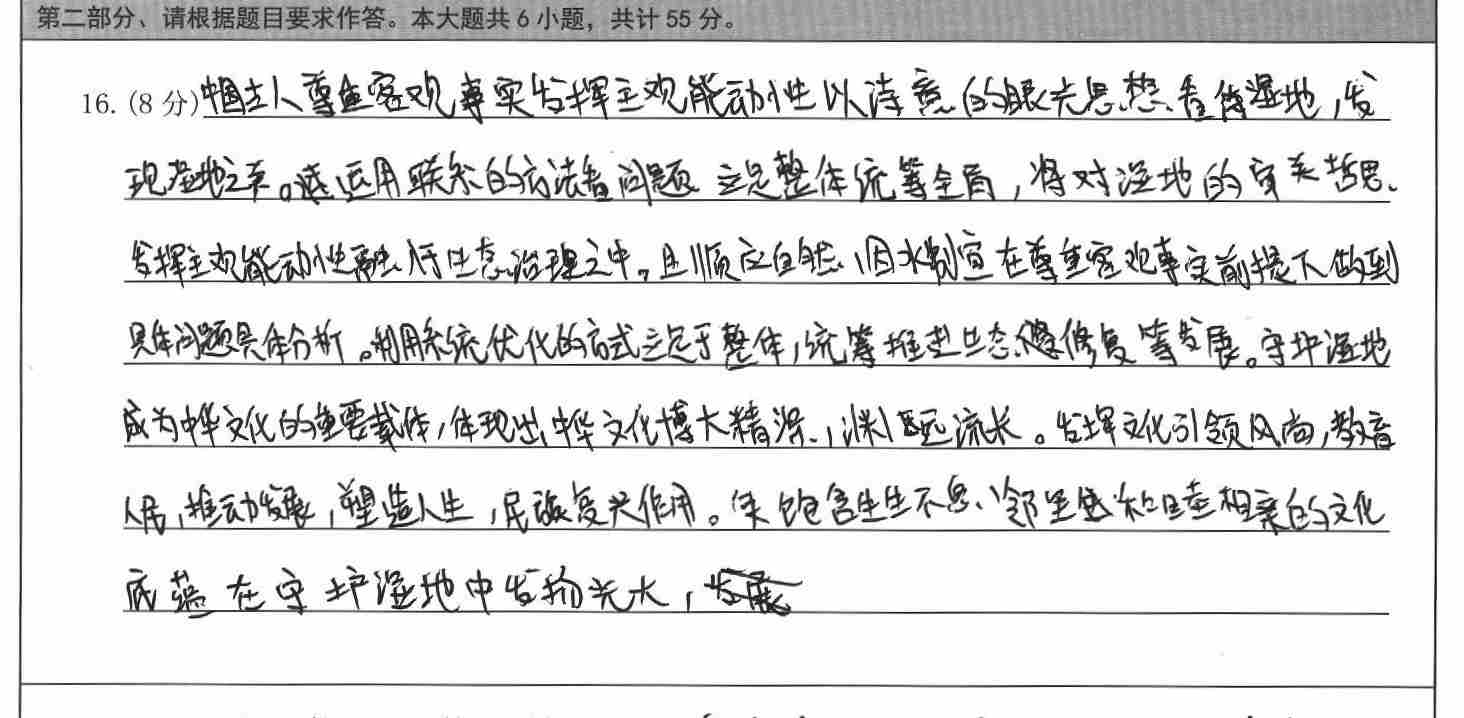 第二部分、请根据题目要求作答。本大题共 6 小题，共计 55 分。
16. (8 分)中国古人尊重客观事实发挥主观能动性以诗意的眼光思想看待湿地，发
现湿地之美。运用联系的方法看问题 立足整体统筹全局，将对湿地的审美哲思、
发挥主观能动性融入于生态治理之中。且顺应自然、因水制宜在尊重客观事实前提下做到
具体问题具体分析。利用系统优化的方式立足于整体，统筹推进生态修复等发展。守护湿地
成为中华文化的重要载体，体现出中华文化博大精深、渊远流长。发挥文化引领风尚，教育
人民，推动发展，塑造人生，民族复兴作用。使饱含生生不息、邻里和睦相亲的文化
底蕴在守护湿地中发扬光大，